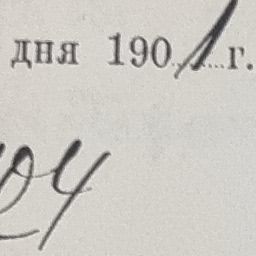 дня 1901 г.
04